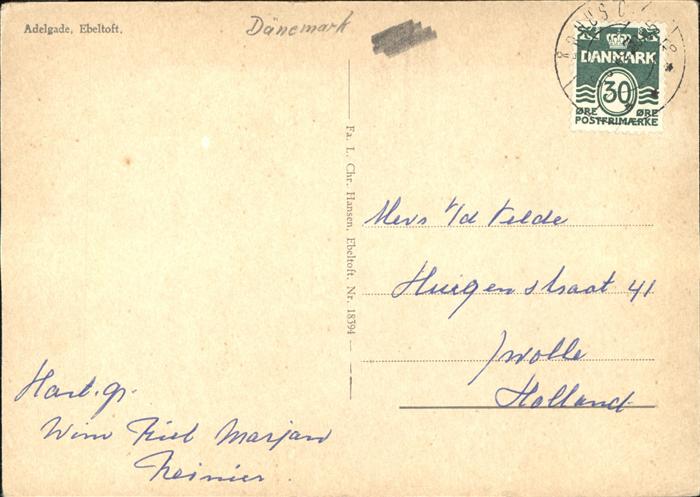 Adelgade, Ebeltoft.
Dänemark
DANMARK
30
ØRE ØRE
POSTFRIMÆRKE
Fa. L. Chr. Hansen, Ebeltoft. Nr. 18394
Mevs v/d Velde
straat 41
Zwolle
Holland
Hart. gr.
Wim Riet Marjan
Reinier